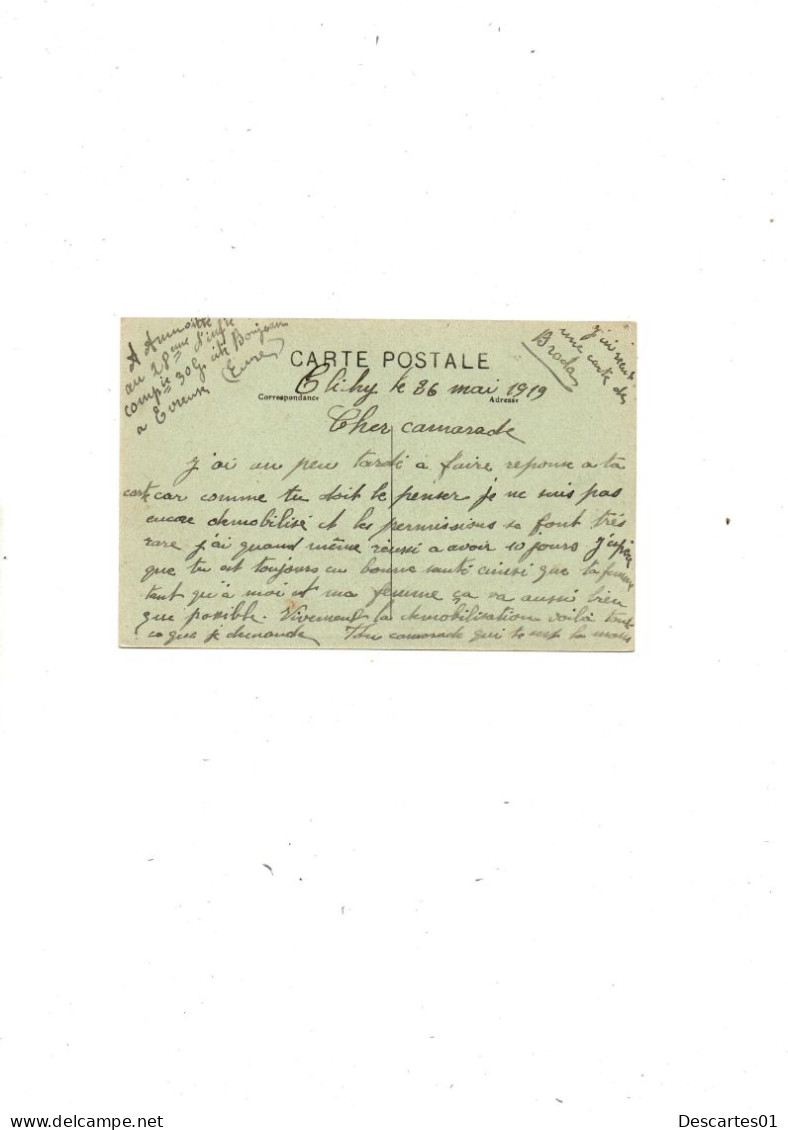 au 28eme d'infie
compie 30 Gr cité Bonjean
a Evreux (Eure)
j'ai reçu
une carte de
Brodas
CARTE POSTALE
Clichy le 26 mai 1919
Correspondance Adresse
Cher camarade
J'ai un peu tardé a faire reponse a ta
carte car comme tu doit le penser je ne suis pas
encore demobilisé et les permissions se font très
rare j'ai quand même réussi a avoir 10 jours J'espère
que tu est toujours en bonne santé ainsi que ta femme
tant qu'à moi et ma femme ça va aussi bien
que posible. Vivement la demobilisation voilà tout
ce que je demande Ton camarade qui te serre la main
Descartes01